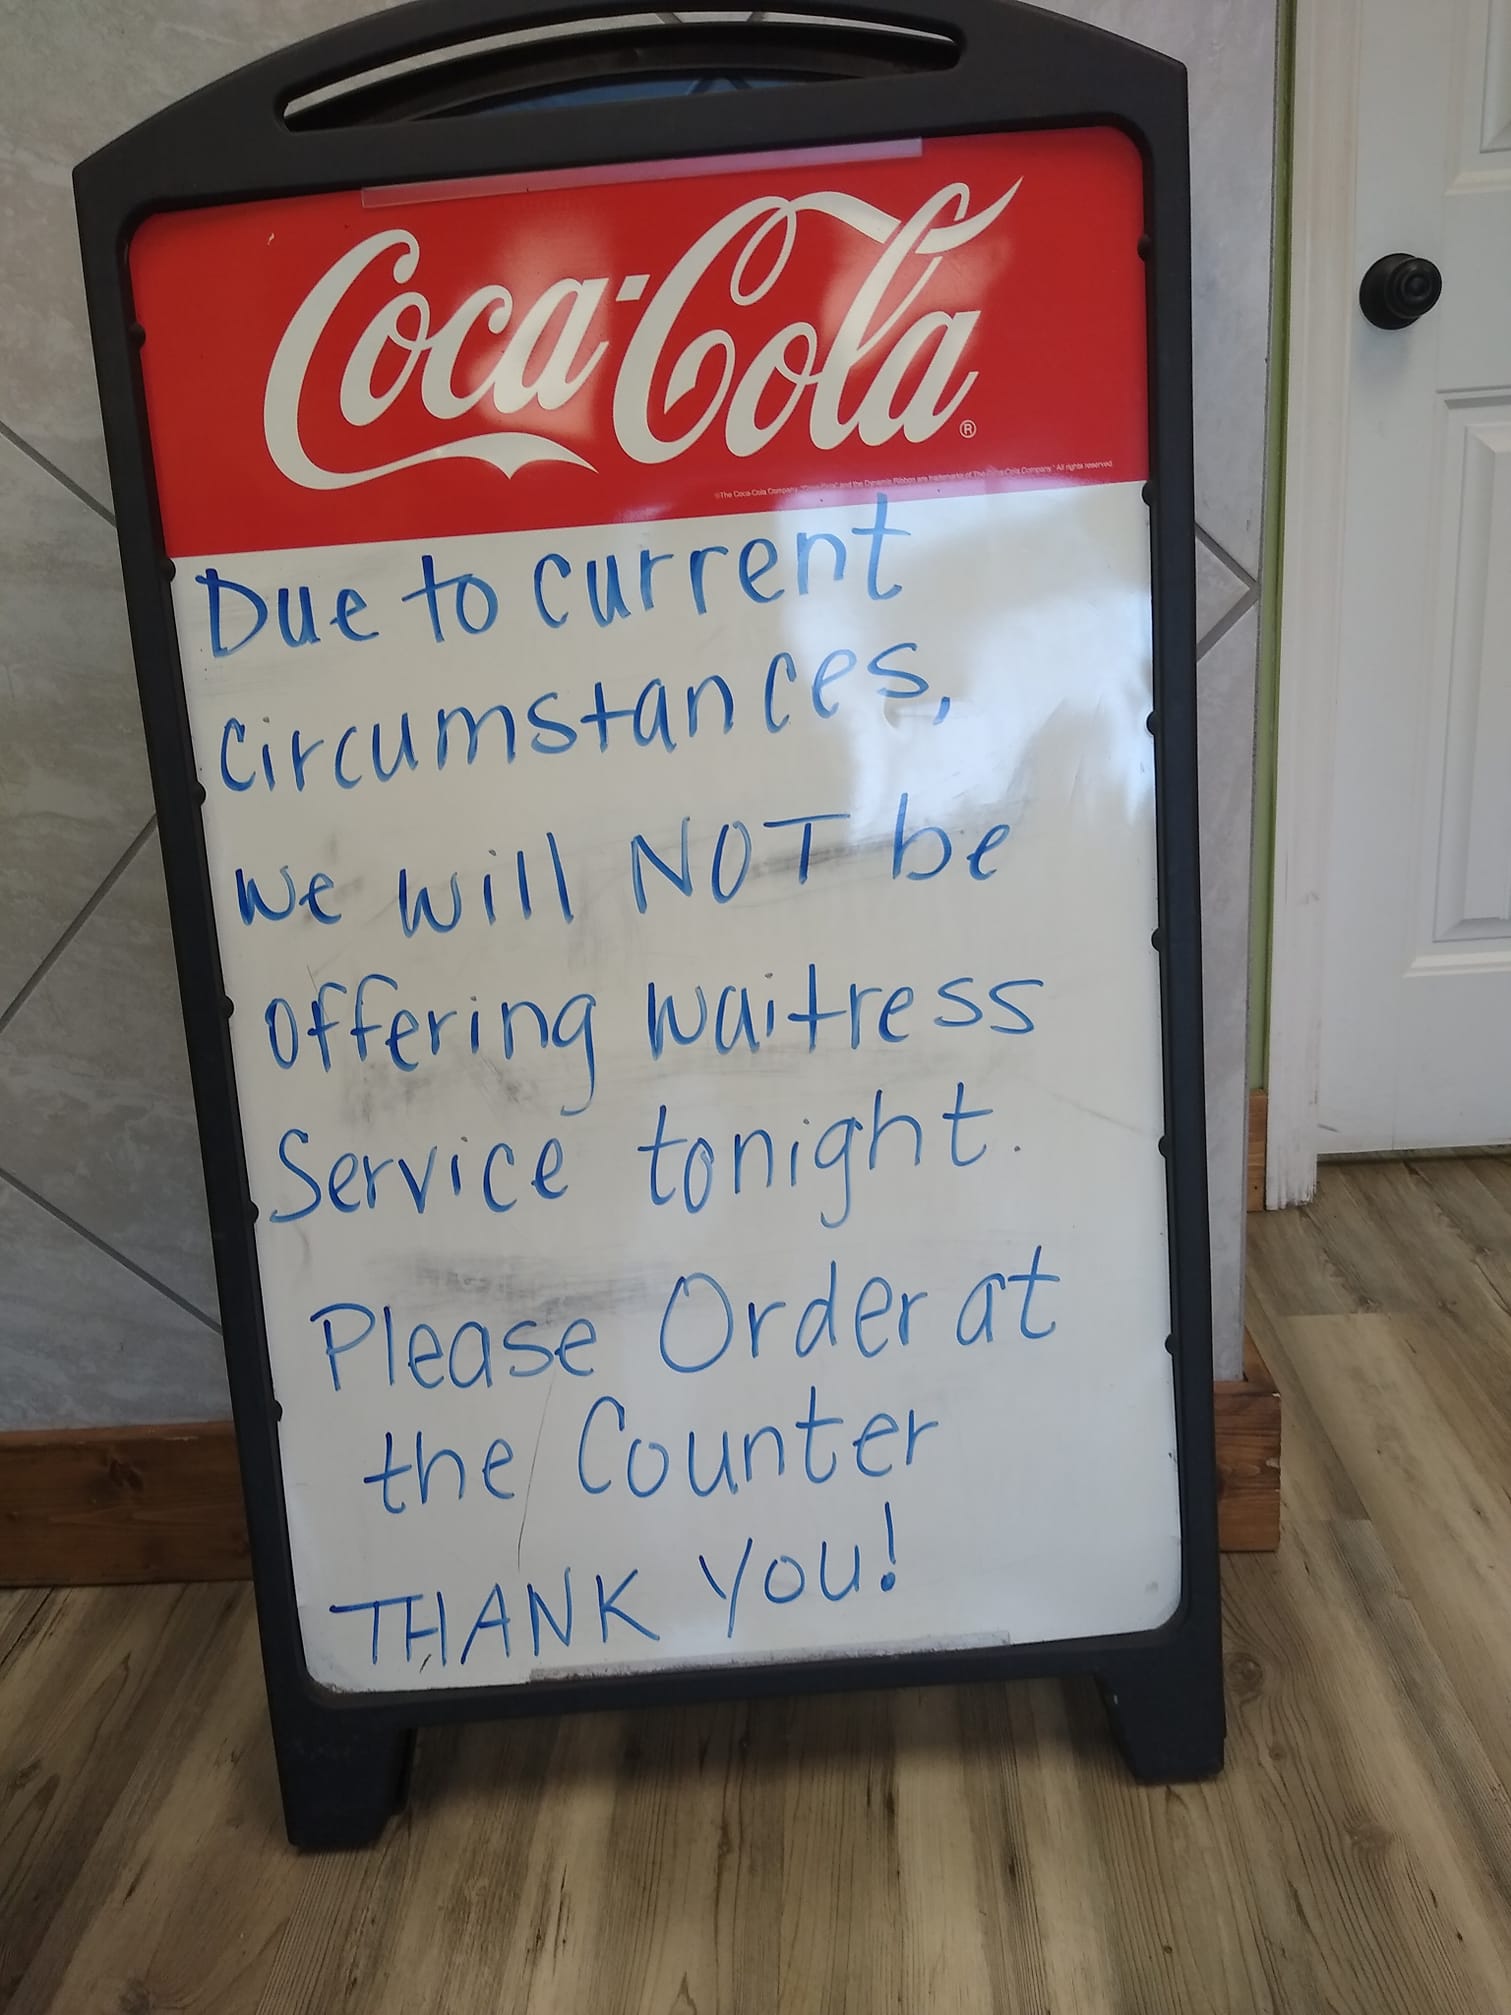 Coca-Cola®
©The Coca-Cola Company. "Coca-Cola" and the Dynamic Ribbon are trademarks of The Coca-Cola Company. All rights reserved.
Due to current
circumstances,
we will NOT be
offering waitress
Service tonight.
Please Order at
the Counter
THANK YOU!